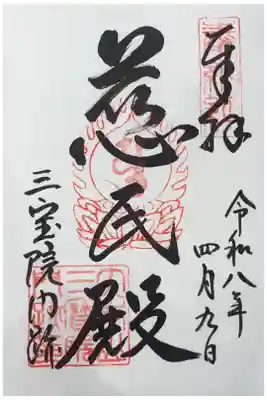 奉拝
令和八年
四月九日
慈氏殿
三宝院門跡